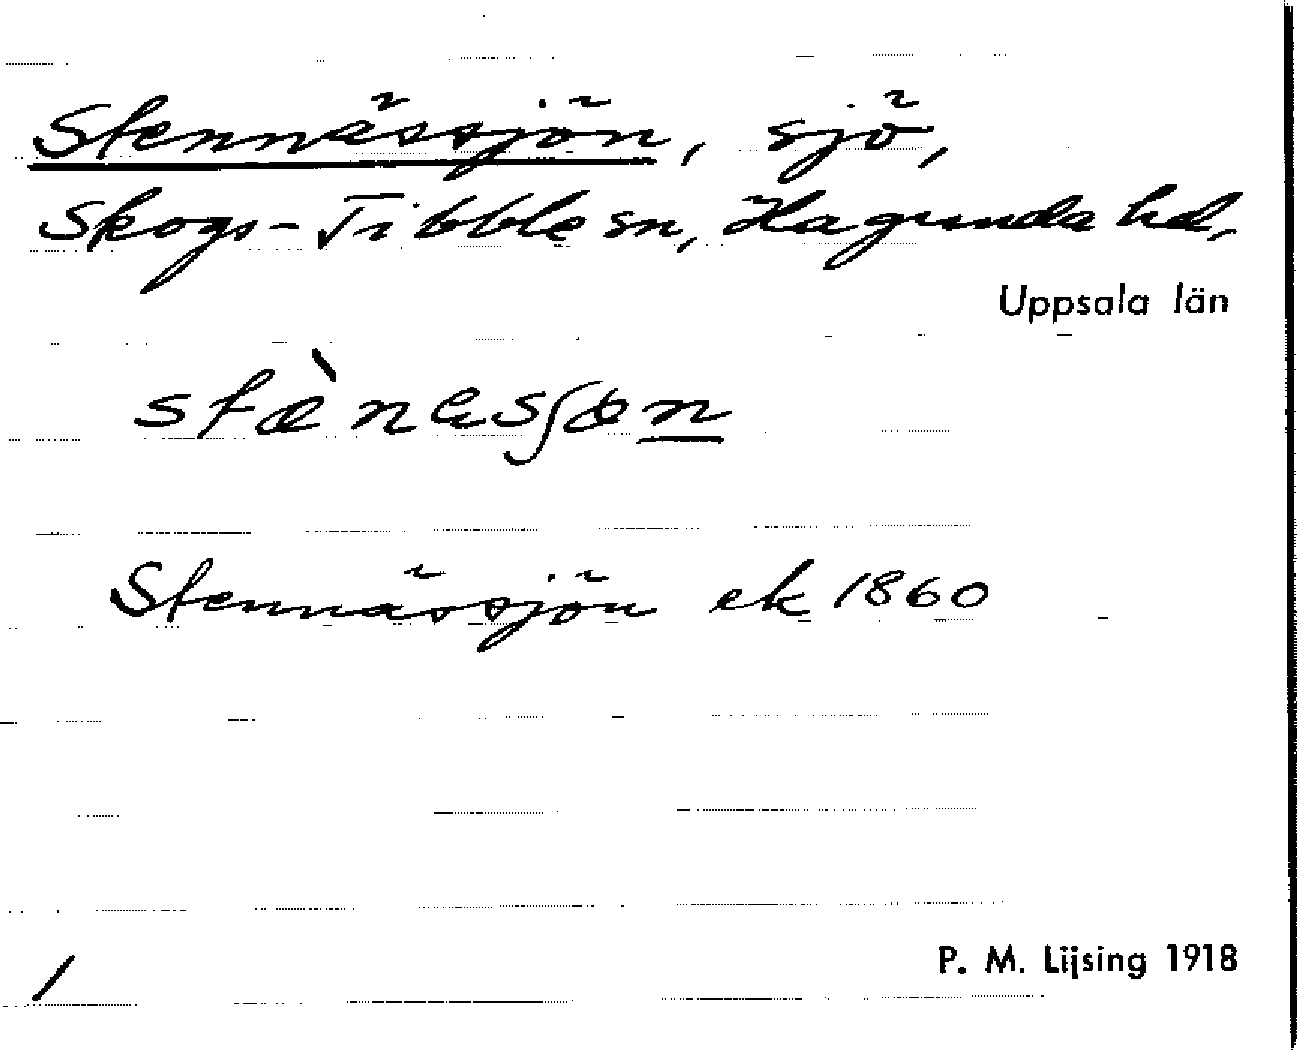 Stennässjön, sjö,
Skogs-Tibble sn, Hagunda hd,
Uppsala län
stæ̀nəsʃøn
Stennässjön ek 1860
P. M. Lijsing 1918
/